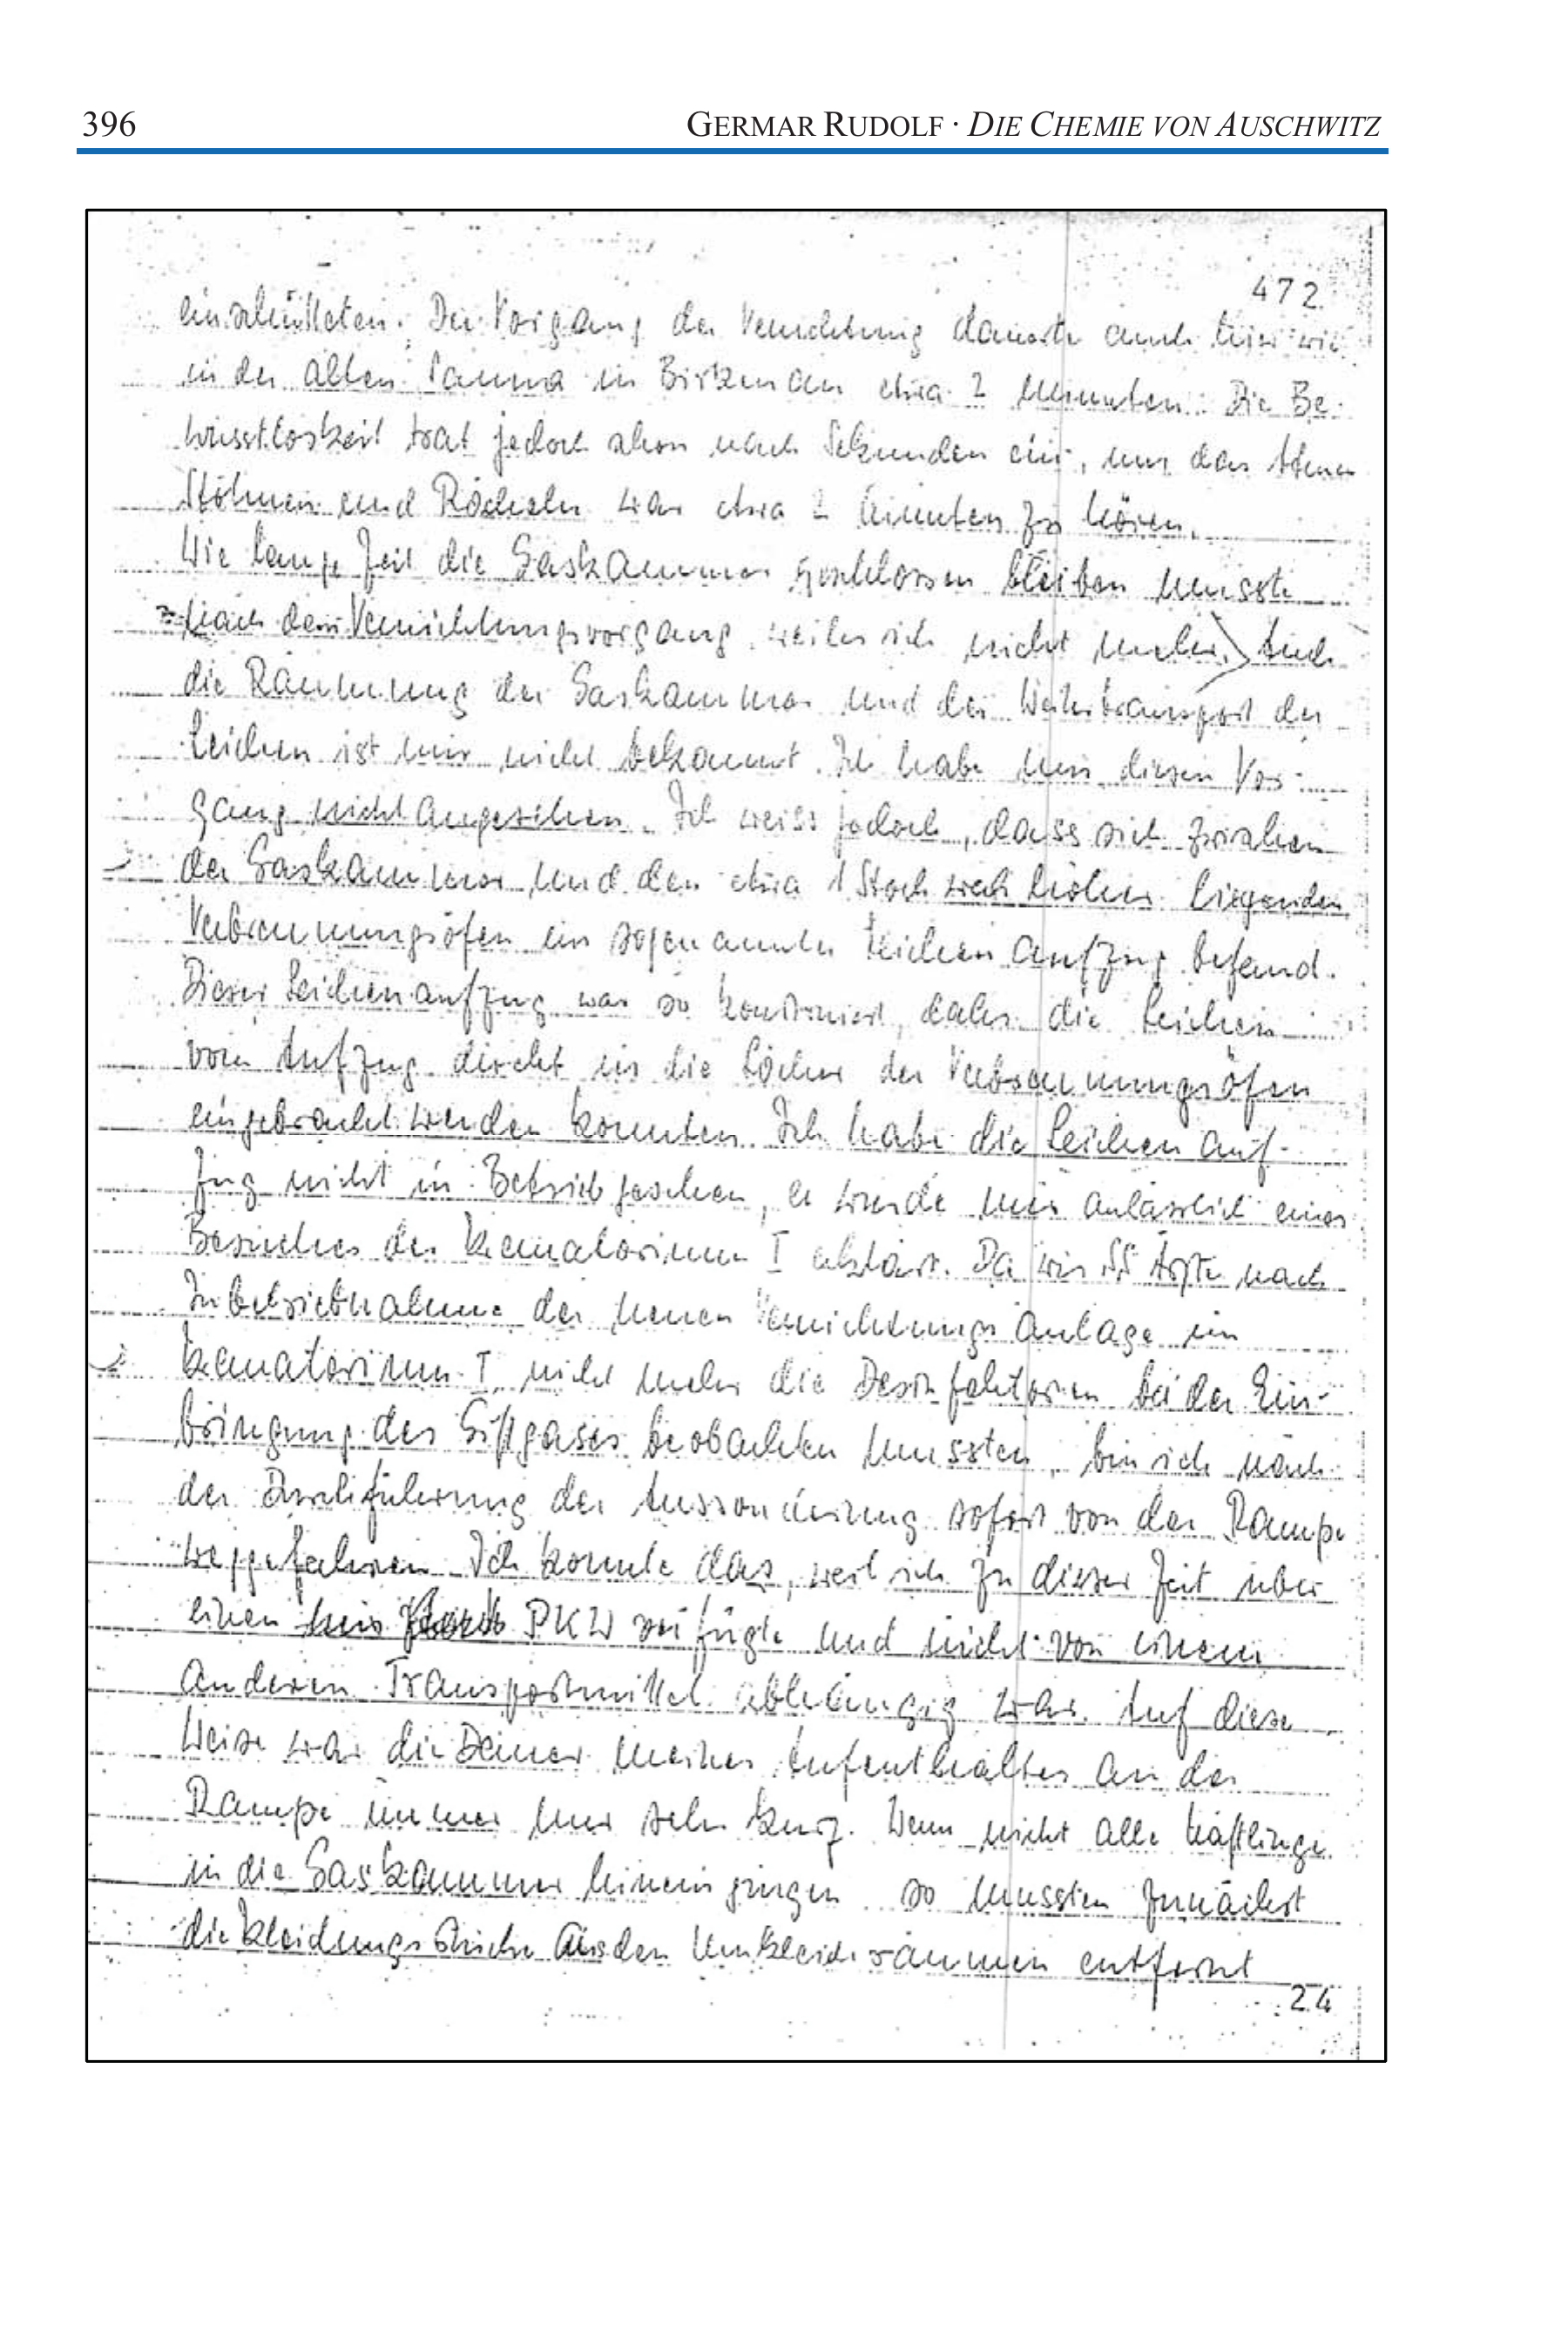 396
GERMAR RUDOLF · DIE CHEMIE VON AUSCHWITZ
472
einschütteten. Der Vorgang der Vernichtung dauerte auch hier wie
in der alten Sauna in Birkenau etwa 2 Minuten. Die Be-
wusstlosigkeit trat jedoch schon nach Sekunden ein, nur das
Stöhnen und Röcheln war etwa 2 Minuten zu hören.
Wie lange Zeit die Gaskammer geschlossen bleiben musste
nach dem Vernichtungsvorgang weiss ich nicht mehr. Auch
die Räumung der Gaskammer und der Weitertransport der
Leichen ist mir nicht bekannt. Ich habe mir diesen Vor-
gang nicht angesehen. Ich weiss jedoch, dass sich zwischen
der Gaskammer und den etwa 1 Stock höher liegenden
Verbrennungsöfen ein sogenannter Leichenaufzug befand.
Dieser Leichenaufzug war so konstruiert, dass die Leichen
vom Aufzug direkt in die Löcher der Verbrennungsöfen
eingebracht werden konnten. Ich habe die Leichenauf-
zug nicht in Betrieb gesehen, er wurde mir anlässlich eines
Besuches des Krematorium I erklärt. Da wir SS Ärzte nach
Inbetriebnahme der neuen Vernichtungs Anlage im
Krematorium I nicht mehr die Desinfektoren bei der Ein-
bringung des Giftgases beobachten mussten, bin ich nach
der Durchführung der Aussonderung sofort von der Rampe
weggefahren. Ich konnte das, weil ich zu dieser Zeit über
einen PKW verfügte und nicht von einem
anderen Transportmittel abhängig war. Auf diese
Weise war die Dauer meines Aufenthaltes an der
Rampe immer nur sehr kurz. Wenn nicht alle Häftlinge
in die Gaskammer hinein gingen so mussten zunächst
die Kleidungsstücke aus den Umkleideräumen entfernt
24